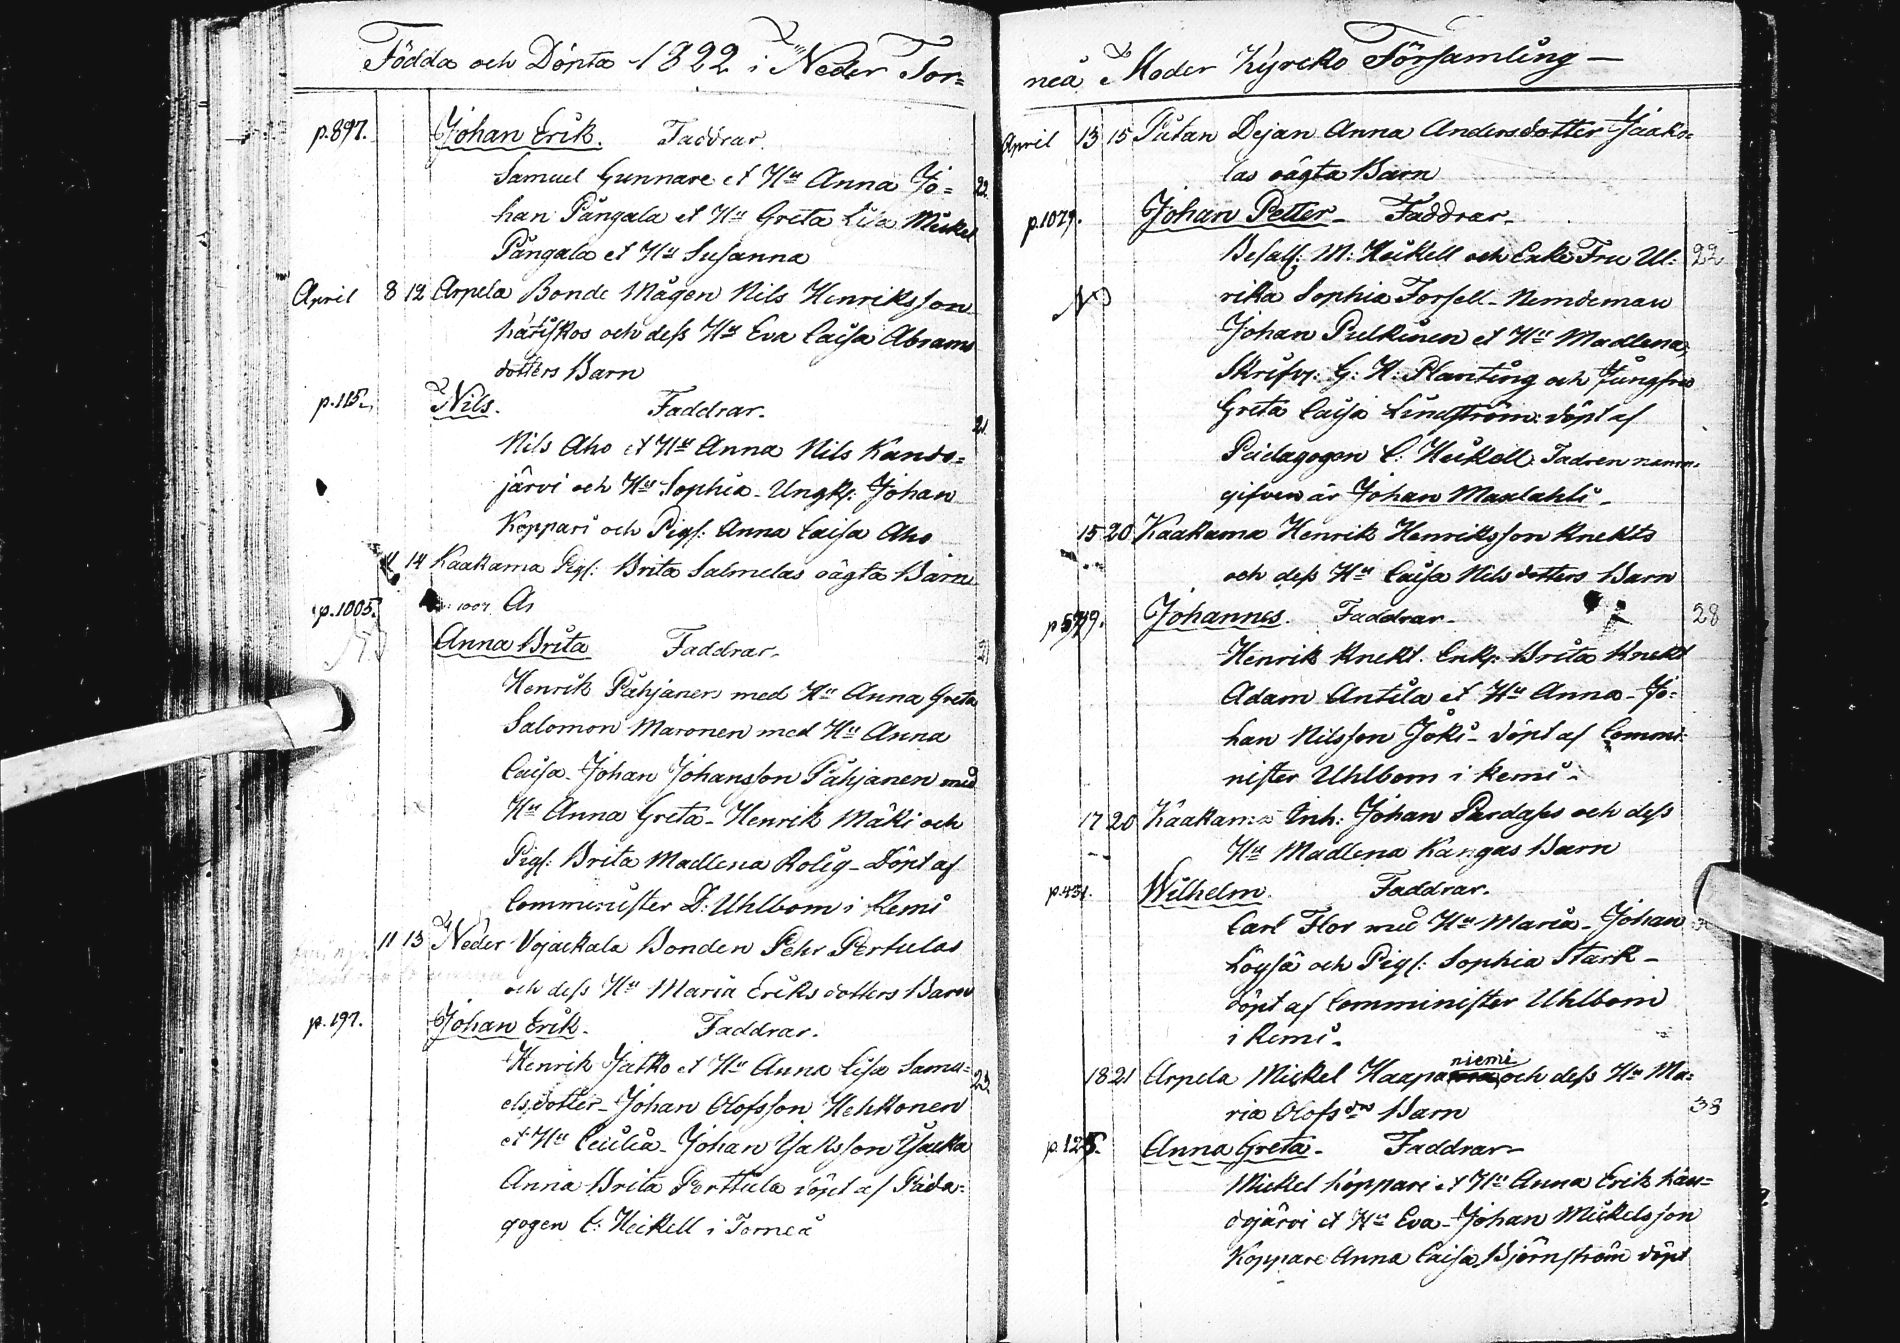 Födda och Döpta 1822 i Neder Tor=
p. 897. Johan Erik. Faddrar.
Samuel Gunnare et Hu Anna Jo= 22.
han Pångala et Hu Greta Lisa Mickel
Pångala et Hu Susanna
April 8 12 Arpela Bonde Mågen Nils Henriksson
och dess Hu Eva Caisa Abrams
dotters Barn
p. 115. Nils. Faddrar. 21.
Nils Aho et Hu Anna Nils Kando=
järvi och Hu Sophia - Ungk: Johan
Koppari och Pig: Anna Caisa Aho
11 14 Kaakama Pig: Brita Salmelas oägta Barn
p. 1005.
Anna Brita Faddrar.
Henrik Påhjanen med Hu Anna Greta
Salomon Maronen med Hu Anna
Caisa - Johan Johansson Påhjanen med
Hu Anna Greta - Henrik Mäki och
Pig: Brita Madlena Rolig - Döpt af
Comminister D: Uhlbom i Kemi
11 13 Neder Vojackala Bonden Pehr Pertulas
och dess Hu Maria Eriks dotters Barn
p. 197. Johan Erik. Faddrar.
Henrik Jatko et Hu Anna Lisa Samu= 23
els dotter - Johan Olofsson Hehkonen
et Hu Cecilia - Johan Isaksson
Anna Brita Perttula döpt af Päda=
gogen C: Heikell i Torneå
neå Moder Kyrcko Församling -
April 13 15 Pudan Dejan Anna Andersdotter Jaako=
las oägta Barn
p. 1079. Johan Petter - Faddrar -
Befall: M: Heikell och Enke Fru Ul: 22
rika Sophia Forsell - Nemdeman
Johan Pulkinen et Hu Madlena,
Skrifv: G: H: Planting och Jungfru
Greta Caisa Lindström: döpt af
Pädagogen C: Heikell. Fadren namn=
gifven är Johan Maxlahti -
15 20 Kaakama Henrik Henriksson Knekts
och dess Hu Caisa Nils dotters Barn
Johannes. Faddrar - 28
Henrik Knekt. Enk: Brita Knekt
Adam Antila et Hu Anna - Jo=
han Nilsson Joki - döpt af Commi=
nister Uhlbom i Kemi -
17 20 Kaakama Inh: Johan Pardases och dess
Hu Madlena Kangas Barn
p. 431. Wilhelm. Faddrar.
Carl Flor med Hu Maria - Johan
och Pig: Sophia Stark -
döpt af Comminister Uhlbom
i Kemi -
18 21 Arpela Mickel Haapaniemi och dess Hu Ma=
ria Olofs drs Barn 38
p. 125. Anna Greta - Faddrar -
Mickel Koppare et Hu Anna Erik Kan=
dojärvi et Hu Eva - Johan Mickelsson
Koppare Anna Caisa Björnström döpt